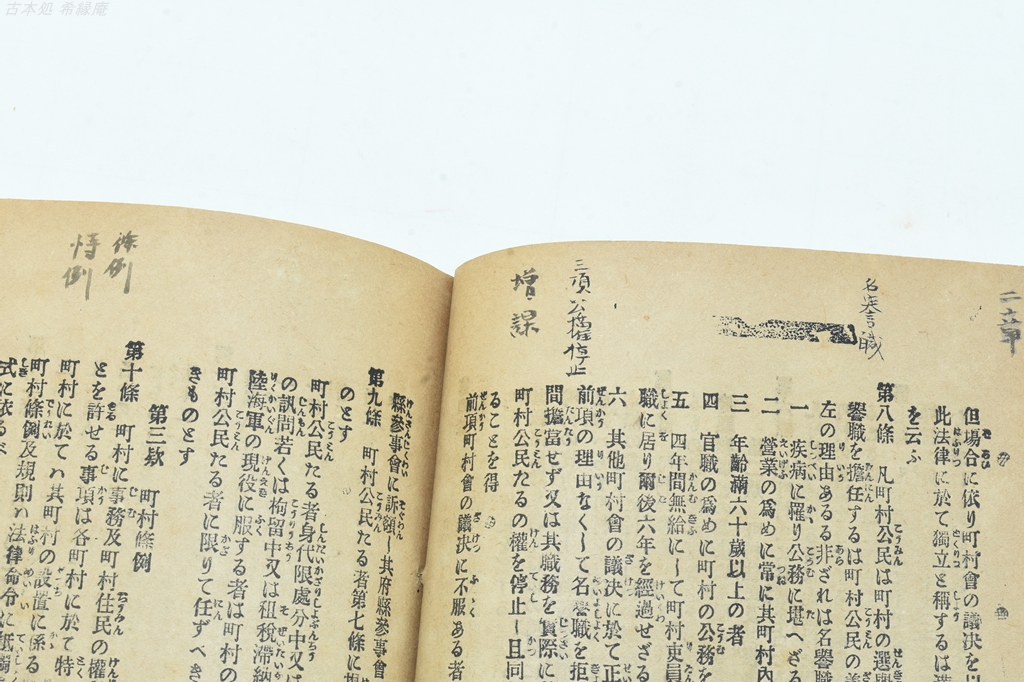 古本処 希縁庵
名誉職
三項 公権停止
増課
但場合に依り町村會の議決を以
此法律に於て獨立と稱するは
を云ふ
第八條 凡町村公民は町村の選擧
譽職を擔任するは町村公民の義
左の理由あるる非ざれは名譽職
一 疾病に罹り公務に堪へざる
二 營業の爲めに常に其町村內
三 年齡滿六十歲以上の者
四 官職の爲めに町村の公務を
五 四年間無給にして町村吏員
職に居り爾後六年を經過せざる
六 其他町村會の議決に於て正
前項の理由なくして名譽職を拒
間擔當せず又は其職務を實際に
町村公民たるの權を停止し且同
ることを得
前項町村會の議決に不服ある者
縣參事會に訴願し其府縣參事會
第九條 町村公民たる者第七條に
のとす
町村公民たる者身代限處分中又は
の訊問若くは拘留中又は租稅滯納
陸海軍の現役に服する者は町村の
町村公民たる者に限りて任ずべき
きものとす
第三欵 町村條例
第十條 町村に事務及町村住民の權
とを許せる事項は各町村に於て特
町村に於てハ其町村の設置に係る
町村條例及規則ハ法律命令に抵觸
式に依るべ
條例
特例